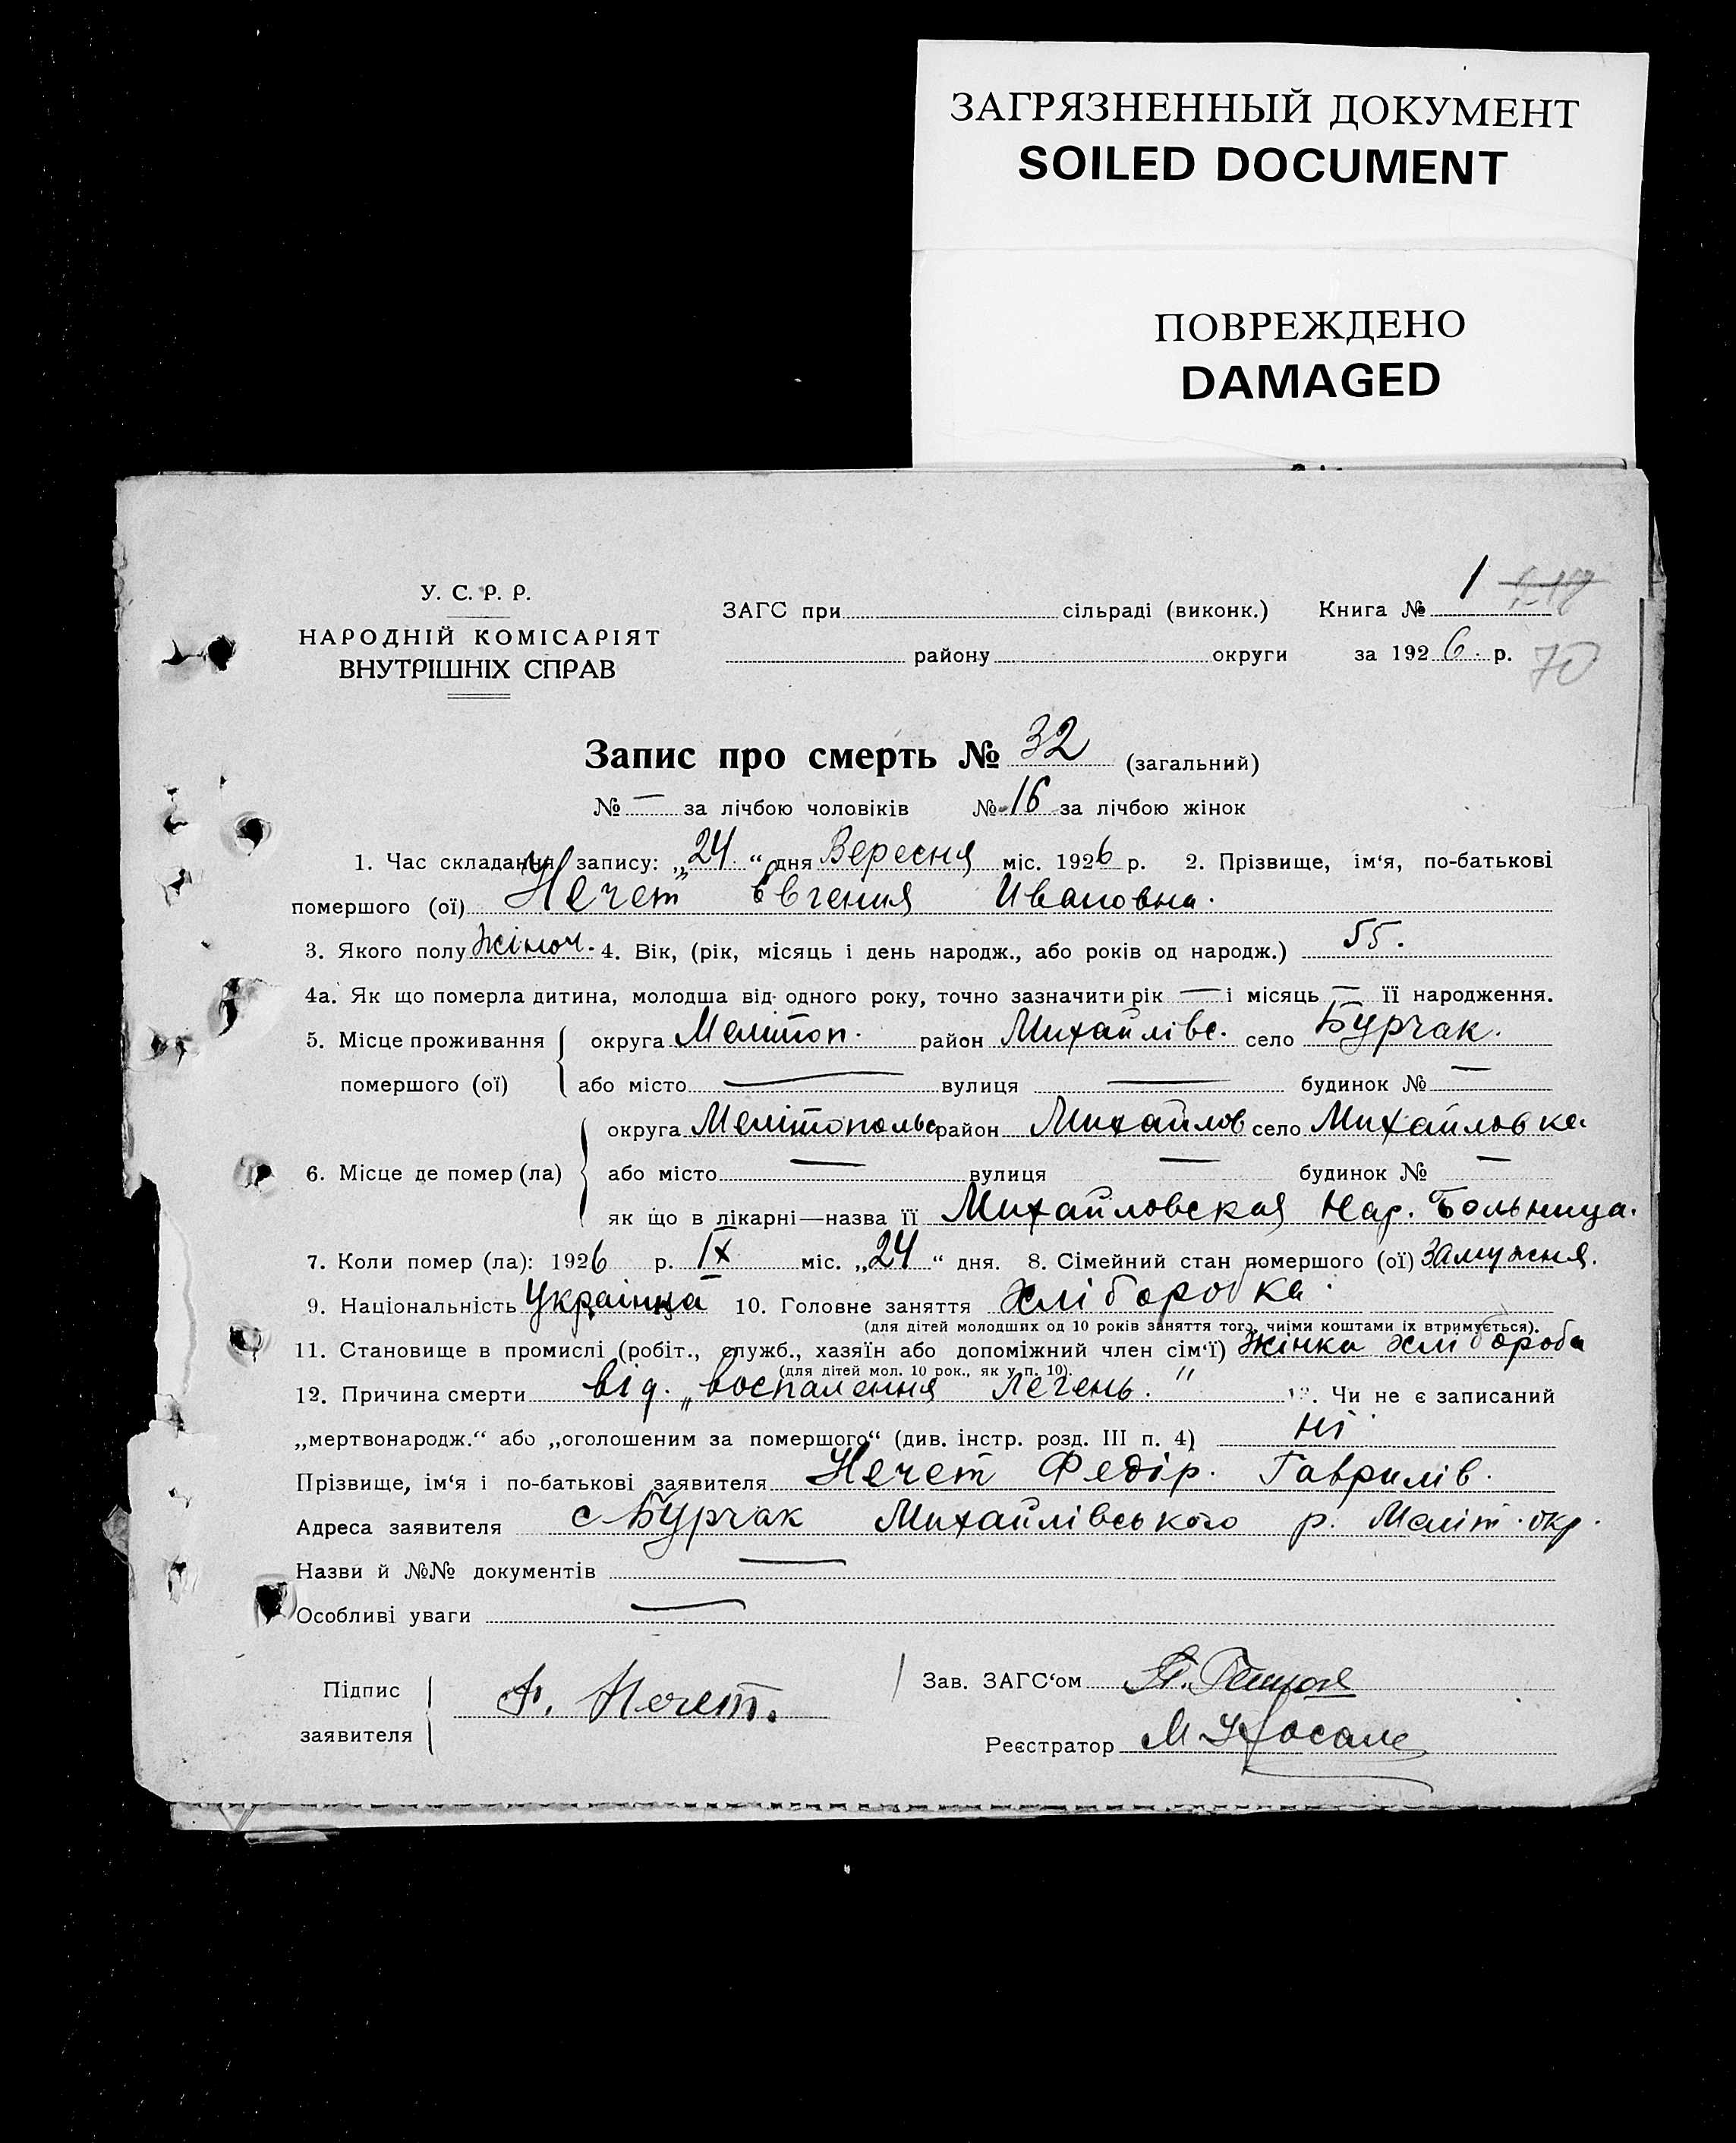 ЗАГРЯЗНЕННЫЙ ДОКУМЕНТ
SOILED DOCUMENT
ПОВРЕЖДЕНО
DAMAGED
У. С. Р. Р.
НАРОДНІЙ КОМІСАРІЯТ
ВНУТРІШНІХ СПРАВ
ЗАГС при сільраді (виконк.) Книга № 1
району округи за 1926 р. 70
Запис про смерть № 32 (загальний)
№ — за лічбою чоловіків № 16 за лічбою жінок
1. Час складання запису: „24“ дня Вересня міс. 1926 р. 2. Прізвище, ім‘я, по-батькові
помершого (ої) Нечет Євгения Ивановна.
3. Якого полу жіноч. 4. Вік, (рік, місяць і день народж., або років од народж.) 55.
4а. Як що померла дитина, молодша від одного року, точно зазначити рік — і місяць — її народження.
5. Місце проживання округа Мелитоп. район Михайлівс. село Бурчак.
помершого (ої) або місто — вулиця — будинок № —
округа Мелітопольс район Михайлов село Михайловка
6. Місце де помер (ла) або місто — вулиця — будинок № —
як що в лікарні—назва її Михайловская Нар. Больница.
7. Коли помер (ла): 1926 р. IX міс. „24“ дня. 8. Сімейний стан помершого (ої) замужня.
9. Національність Українка 10. Головне заняття хліборобка.
(для дітей молодших од 10 років заняття того, чиїми коштами їх втримується).
11. Становище в промислі (робіт., служб., хазяїн або допоміжний член сім‘ї) жінка хлібороба
(для дітей мол. 10 рок., як у п. 10).
12. Причина смерти від „воспалення легень.“ 13. Чи не є записаний
„мертвонародж.“ або „оголошеним за помершого“ (див. інстр. розд. III п. 4) ні
Прізвище, ім‘я і по-батькові заявителя Нечет Федір. Гаврилів.
Адреса заявителя с Бурчак Михайлівського р. Меліт. окр.
Назви й №№ документів —
Особливі уваги —
Підпис
заявителя Ф. Нечет.
Зав. ЗАГС‘ом
Реєстратор